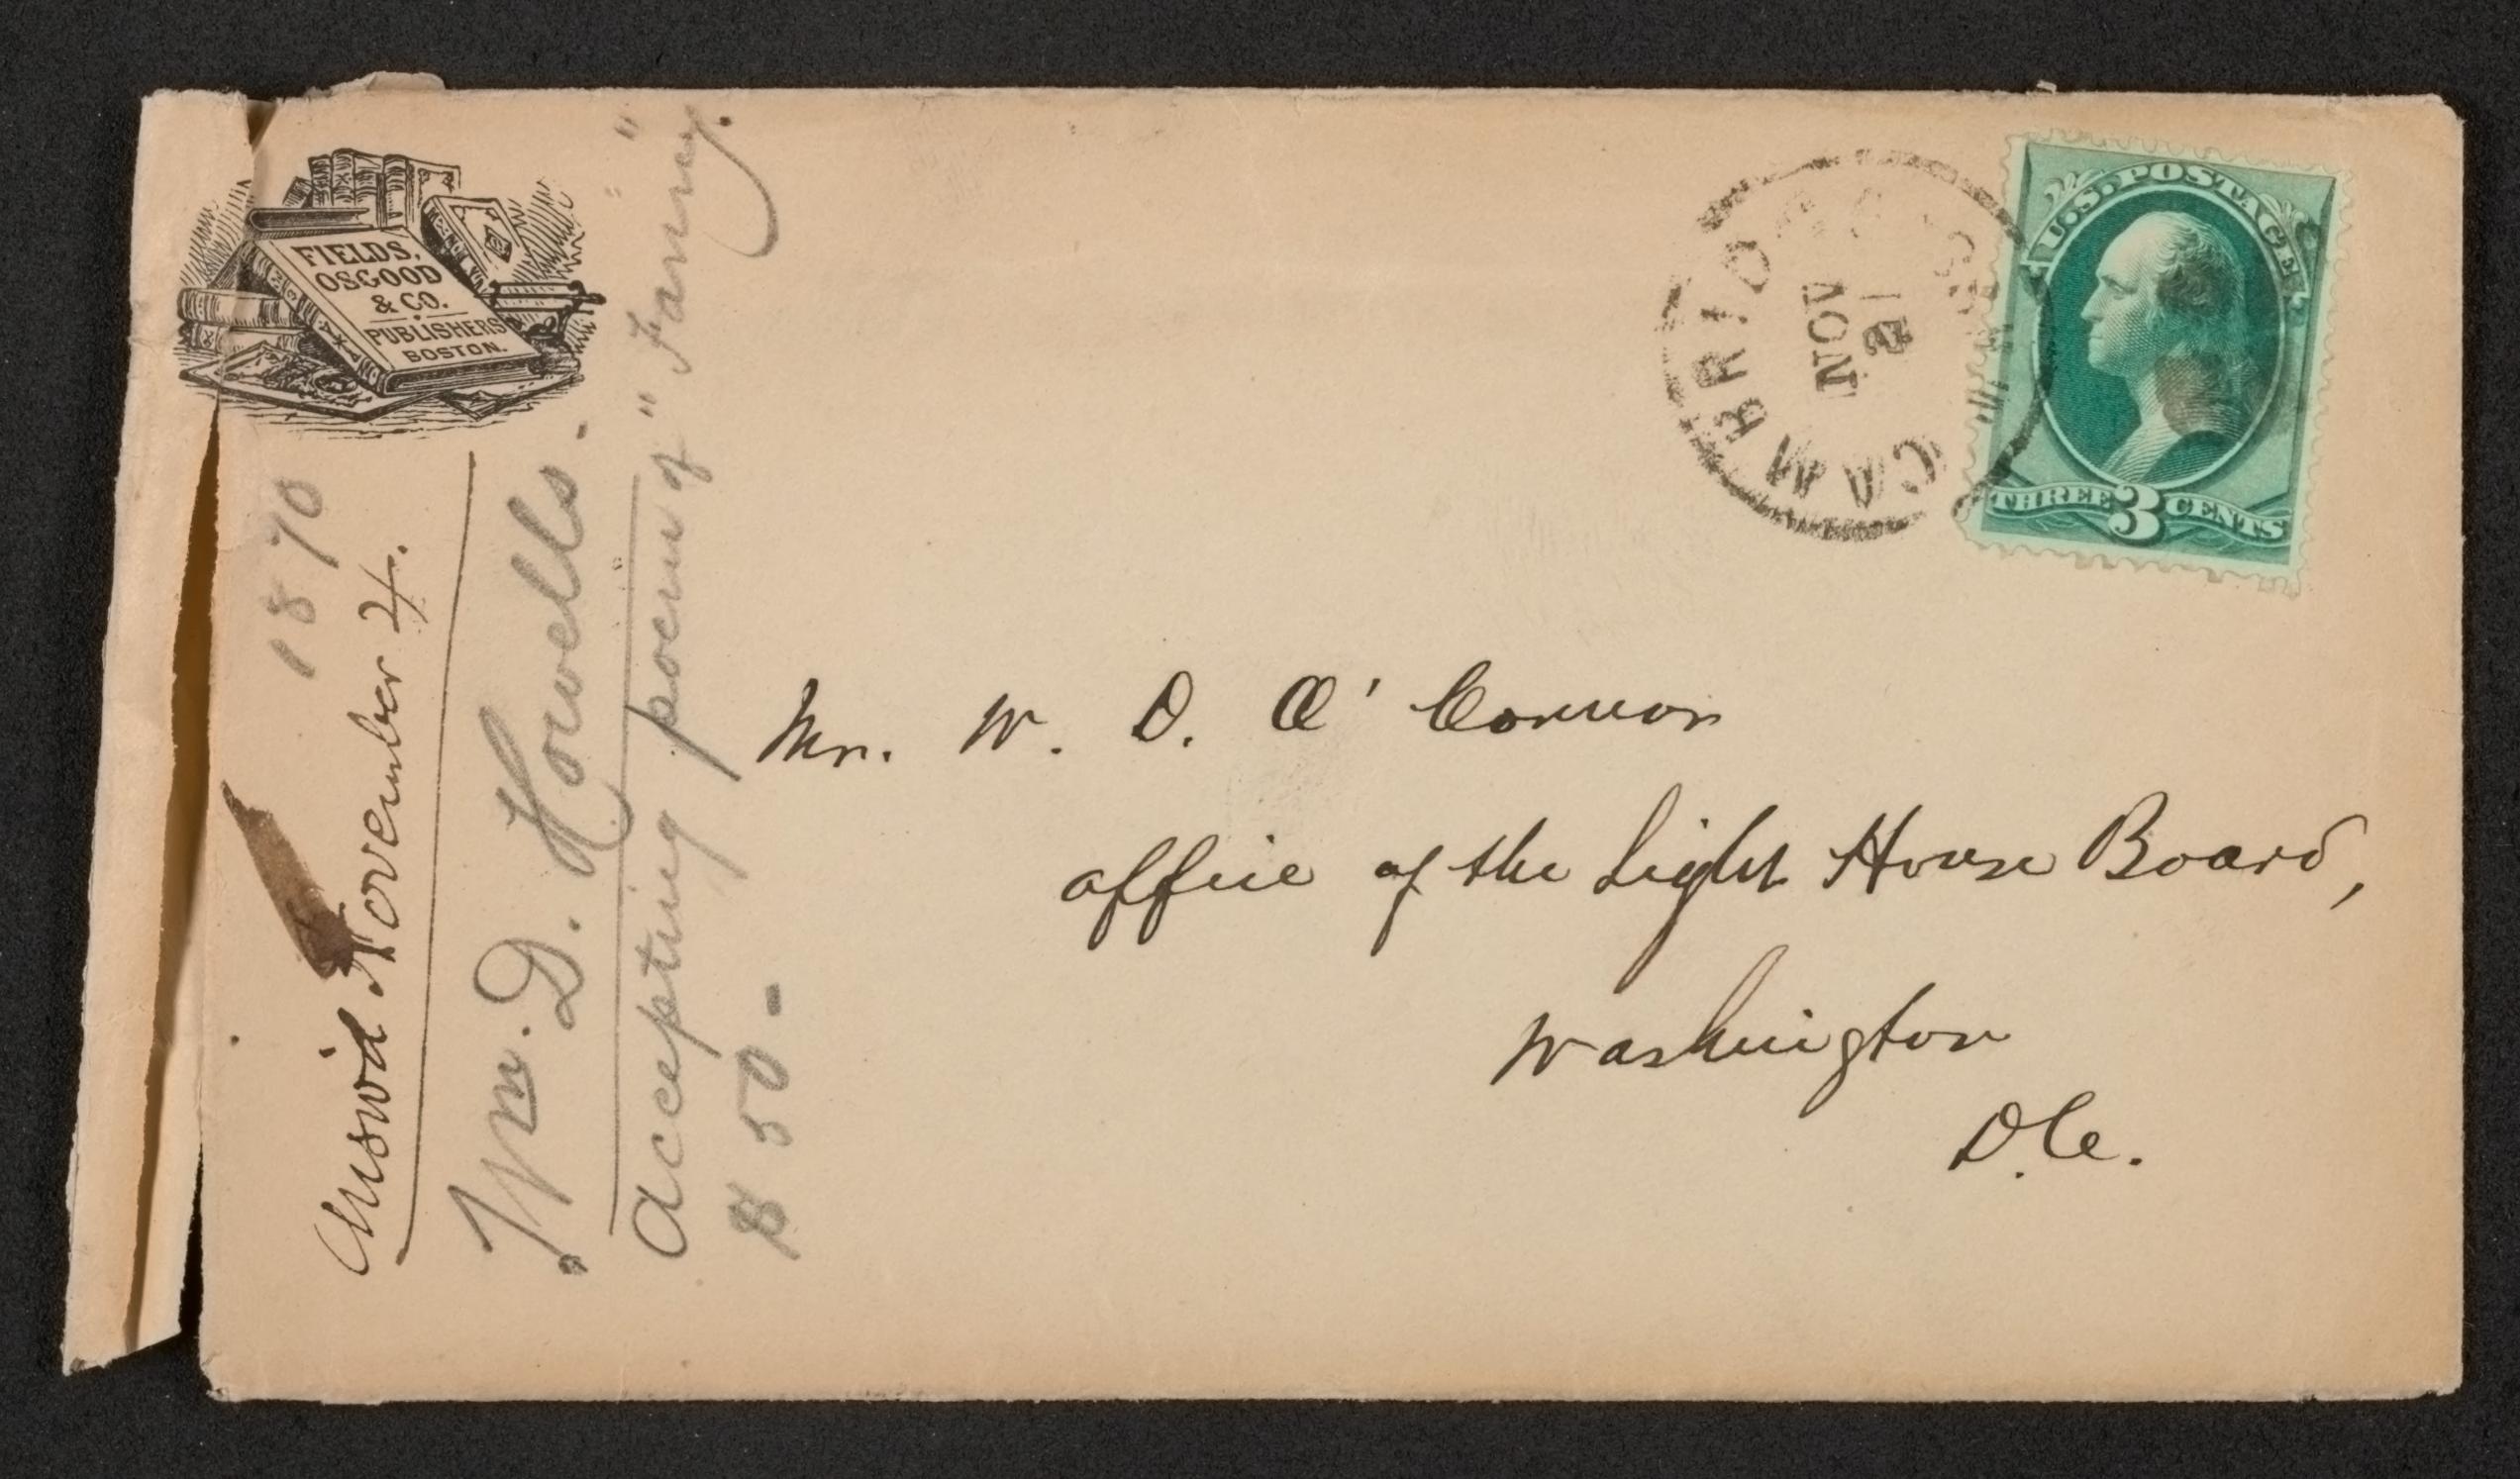 FIELDS,
OSGOOD
& CO.
PUBLISHERS
BOSTON.
1870
Answ'd November 4.
Wm. D. Howells.
accepting poem of "Fanney."
$50-
CAMBRIDGE
NOV
U.S. POSTAGE
THREE 3 CENTS
Mr. W. D. O'Connor
office of the Light House Board,
Washington
D.C.